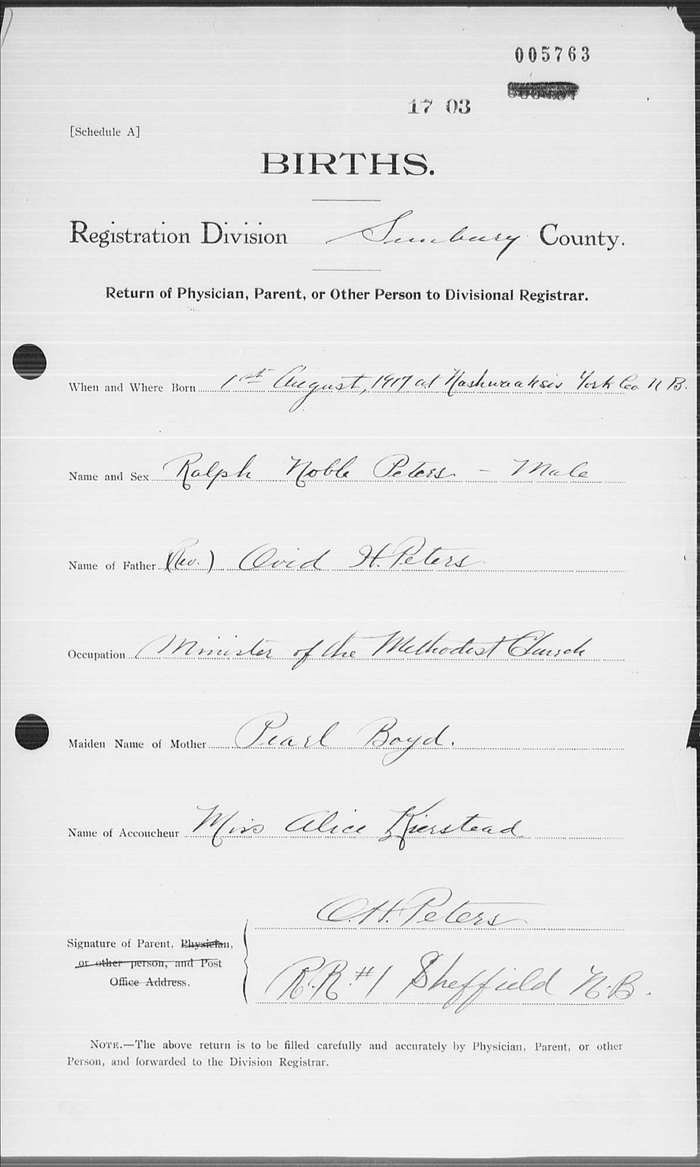 005763
17 03
[Schedule A]
BIRTHS.
Registration Division Sunbury County.
Return of Physician, Parent, or Other Person to Divisional Registrar.
When and Where Born 1st August, 1917 at Nashwaaksis York Co N B.
Name and Sex Ralph Noble Peters - Male
Name of Father (Rev.) Ovid H. Peters
Occupation Minister of the Methodist Church
Maiden Name of Mother Pearl Boyd.
Name of Accoucheur Miss Alice Kierstead
O.H. Peters
Signature of Parent, Physician,
or other person, and Post
Office Address.
R.R. #1 Sheffield N.B.
NOTE.—The above return is to be filled carefully and accurately by Physician, Parent, or other
Person, and forwarded to the Division Registrar.